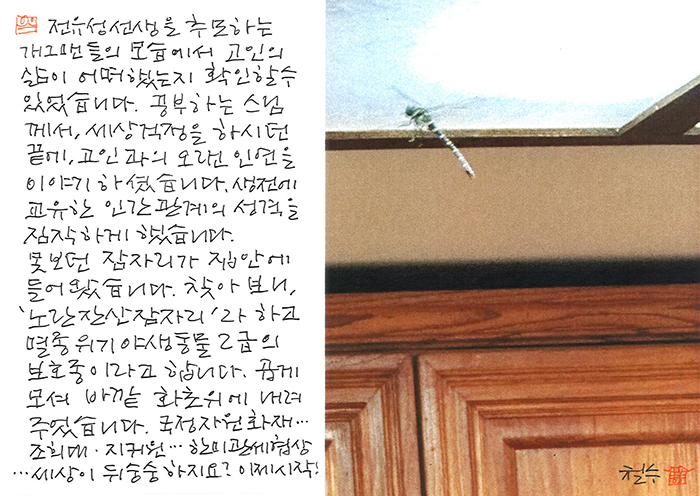 전유성선생을 추모하는
개그맨들의 모습에서 고인의
삶이 어떠했는지 확인할수
있었습니다. 공부하는 스님
께서, 세상걱정을 하시던
끝에, 고인과의 오랜 인연을
이야기 하셨습니다. 생전에
교유한 인간관계의 성격을
짐작하게 했습니다.
못보던 잠자리가 집안에
들어왔습니다. 찾아 보니,
'노란잔산잠자리'라 하고
멸종위기야생동물 2급의
보호종이라고 합니다. 곱게
모셔 바깥 화초위에 내려
주었습니다. 국정자원화재...
조희대·지귀원... 한미관세협상
...세상이 뒤숭숭하지요? 이제시작!
철수